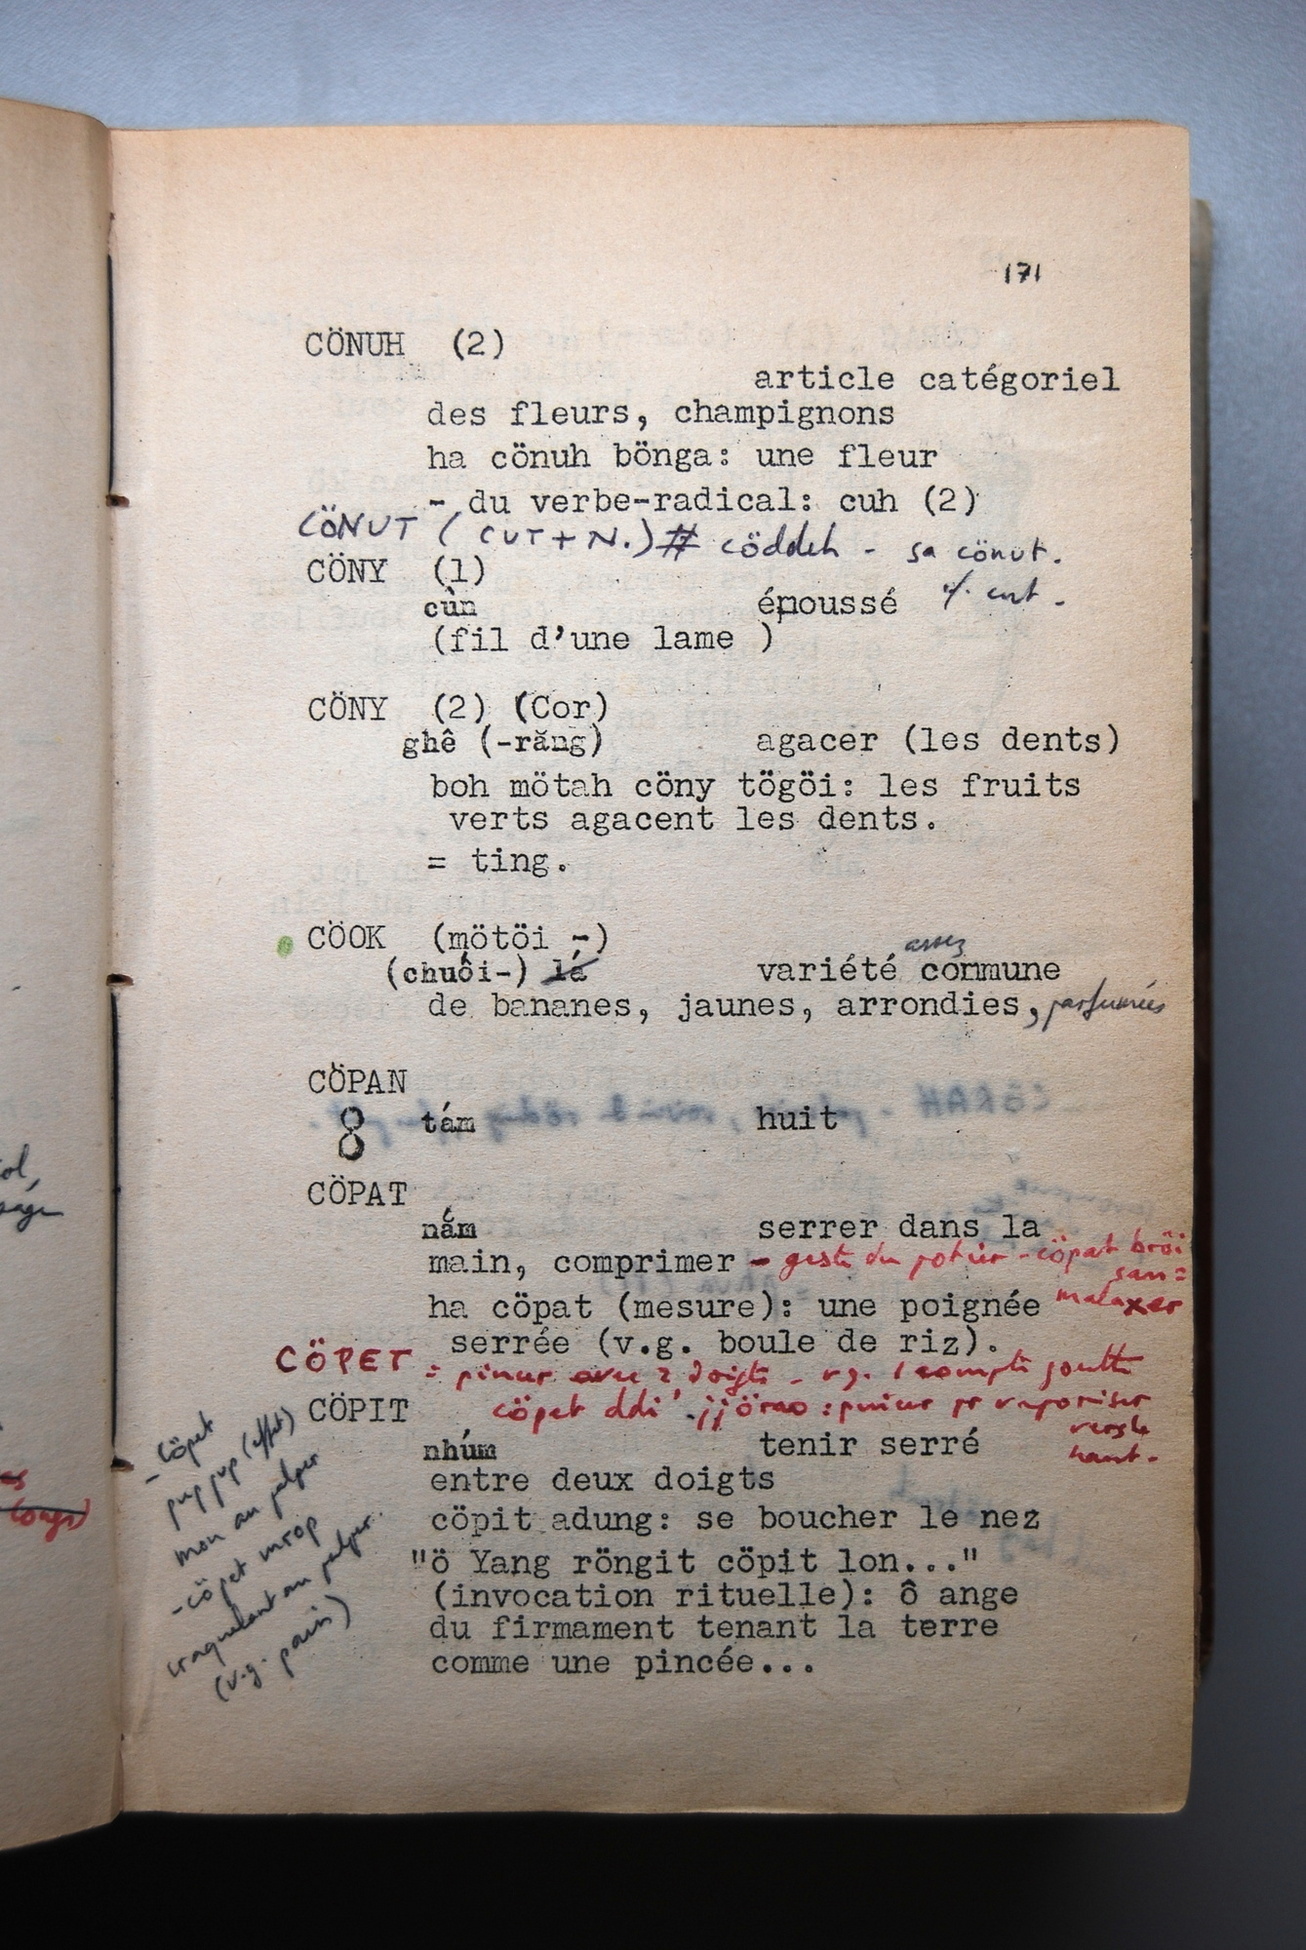 171
CÖNUH (2)
article catégoriel
des fleurs, champignons
ha cönuh bönga: une fleur
- du verbe-radical: cuh (2)
CÖNUT ( CUT + N.) # cöddeh - sa cönut.
CÖNY (1)
cùn époussé cut -
(fil d'une lame )
CÖNY (2) (Cor)
ghê (-răng) agacer (les dents)
boh mötah cöny tögöi: les fruits
verts agacent les dents.
= ting.
CÖOK (mötöi -)
assez
(chuối-) lá variété commune
de bananes, jaunes, arrondies, parfumées
CÖPAN
8 tám huit
CÖPAT
nắm serrer dans la
main, comprimer - geste du potier - cöpat bröi
malaxer
ha cöpat (mesure): une poignée
serrée (v.g. boule de riz).
CÖPET = pincer avec 2 doigts - vg. 1 compte goutte
cöpet ddi' : pincer pr vaporiser
vers le
haut.
CÖPIT
nhúm tenir serré
entre deux doigts
cöpit adung: se boucher le nez
"ö Yang röngit cöpit lon..."
(invocation rituelle): ô ange
du firmament tenant la terre
comme une pincée...
- cöpet
pup pup (effet)
mou au palper
- cöpet mrop
craquelant au palper.
(v.g. pain)